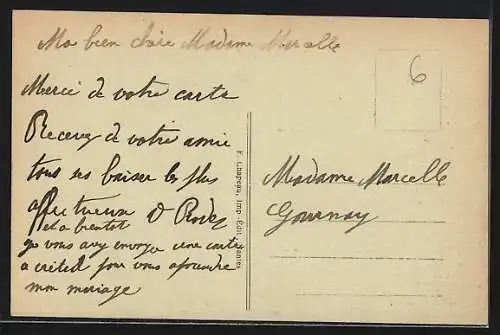 Ma bien chère Madame Marcelle
Merci de votre carte
Recevez de votre amie
tous ses baiser les plus
affectueux D Rodez
et a bientot
je vous avez envoyer une carte
a créteil pour vous aprendre
mon mariage
F. Chapeau, Imp.-Edit., Nantes
6
Madame Marcelle
Gournay